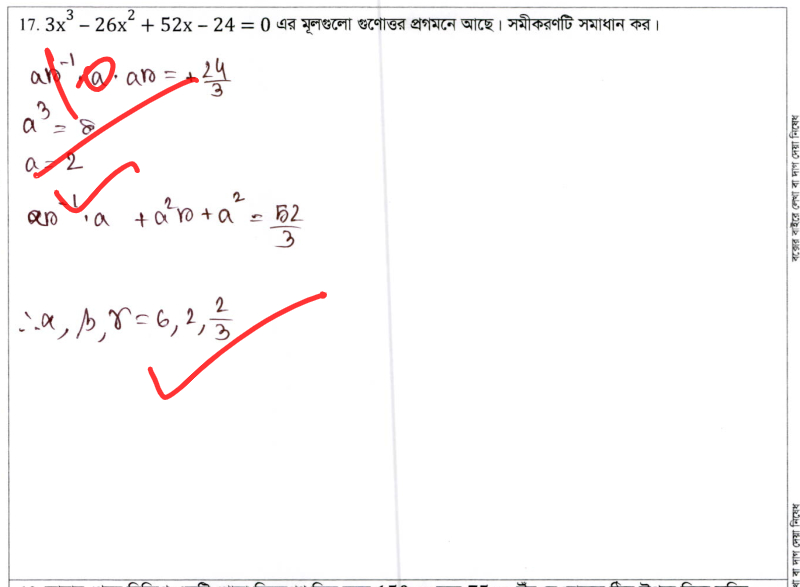 17. 3x³ − 26x² + 52x − 24 = 0 এর মূলগুলো গুণোত্তর প্রগমনে আছে। সমীকরণটি সমাধান কর।
ar⁻¹ · a · ar = + 24/3
a³ = 8
a = 2
ar⁻¹ · a + a²r + a² = 52/3
∴ α, β, γ = 6, 2, 2/3
বক্সের বাইরে লেখা বা দাগ দেয়া নিষেধ
বা দাগ দেয়া নিষেধ